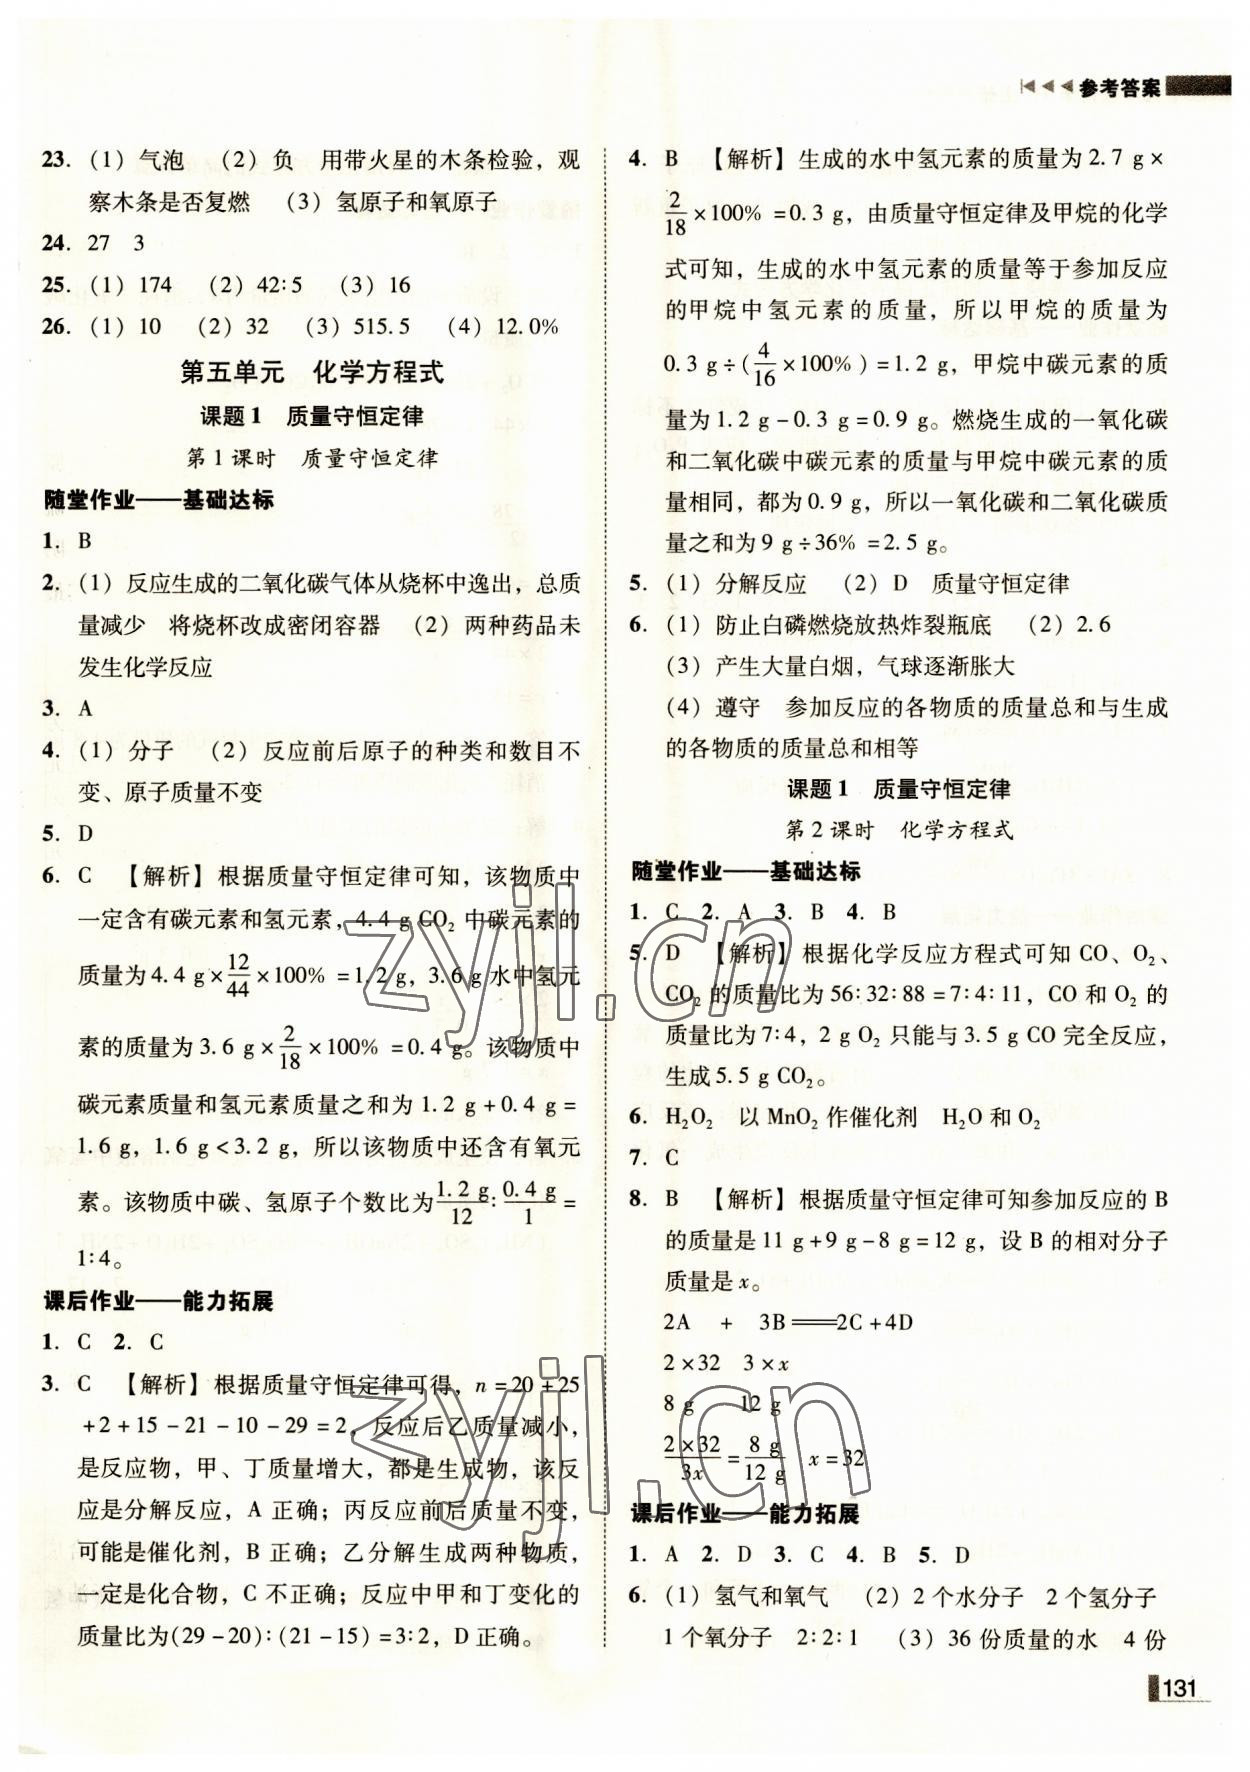 参考答案
23. (1) 气泡 (2) 负 用带火星的木条检验，观
察木条是否复燃 (3) 氢原子和氧原子
24. 27 3
25. (1) 174 (2) 42∶5 (3) 16
26. (1) 10 (2) 32 (3) 515.5 (4) 12.0%
第五单元 化学方程式
课题1 质量守恒定律
第1课时 质量守恒定律
随堂作业——基础达标
1. B
2. (1) 反应生成的二氧化碳气体从烧杯中逸出，总质
量减少 将烧杯改成密闭容器 (2) 两种药品未
发生化学反应
3. A
4. (1) 分子 (2) 反应前后原子的种类和数目不
变、原子质量不变
5. D
6. C 【解析】根据质量守恒定律可知，该物质中
一定含有碳元素和氢元素，4.4 g CO₂ 中碳元素的
质量为4.4 g×12/44×100% =1.2 g，3.6 g 水中氢元
素的质量为3.6 g×2/18×100% =0.4 g。该物质中
碳元素质量和氢元素质量之和为1.2 g+0.4 g=
1.6 g，1.6 g<3.2 g，所以该物质中还含有氧元
素。该物质中碳、氢原子个数比为1.2 g/12∶0.4 g/1=
1∶4。
课后作业——能力拓展
1. C 2. C
3. C 【解析】根据质量守恒定律可得，n=20+25
+2+15-21-10-29=2，反应后乙质量减小，
是反应物，甲、丁质量增大，都是生成物，该反
应是分解反应，A 正确；丙反应前后质量不变，
可能是催化剂，B 正确；乙分解生成两种物质，
一定是化合物，C 不正确；反应中甲和丁变化的
质量比为(29-20)∶(21-15)=3∶2，D 正确。
4. B 【解析】生成的水中氢元素的质量为2.7 g×
2/18×100% =0.3 g，由质量守恒定律及甲烷的化学
式可知，生成的水中氢元素的质量等于参加反应
的甲烷中氢元素的质量，所以甲烷的质量为
0.3 g÷(4/16×100%)=1.2 g，甲烷中碳元素的质
量为1.2 g-0.3 g=0.9 g。燃烧生成的一氧化碳
和二氧化碳中碳元素的质量与甲烷中碳元素的质
量相同，都为0.9 g，所以一氧化碳和二氧化碳质
量之和为9 g÷36% =2.5 g。
5. (1) 分解反应 (2) D 质量守恒定律
6. (1) 防止白磷燃烧放热炸裂瓶底 (2) 2.6
(3) 产生大量白烟，气球逐渐胀大
(4) 遵守 参加反应的各物质的质量总和与生成
的各物质的质量总和相等
课题1 质量守恒定律
第2课时 化学方程式
随堂作业——基础达标
1. C 2. A 3. B 4. B
5. D 【解析】根据化学反应方程式可知 CO、O₂、
CO₂ 的质量比为56∶32∶88=7∶4∶11，CO 和 O₂ 的
质量比为7∶4，2 g O₂ 只能与3.5 g CO 完全反应，
生成5.5 g CO₂。
6. H₂O₂ 以 MnO₂ 作催化剂 H₂O 和 O₂
7. C
8. B 【解析】根据质量守恒定律可知参加反应的 B
的质量是11 g+9 g-8 g=12 g，设 B 的相对分子
质量是 x。
2A + 3B══2C+4D
2×32 3×x
8 g 12 g
2×32/3x=8 g/12 g x=32
课后作业——能力拓展
1. A 2. D 3. C 4. B 5. D
6. (1) 氢气和氧气 (2) 2 个水分子 2 个氢分子
1 个氧分子 2∶2∶1 (3) 36 份质量的水 4 份
131
zyjl.cn
zyjl.cn